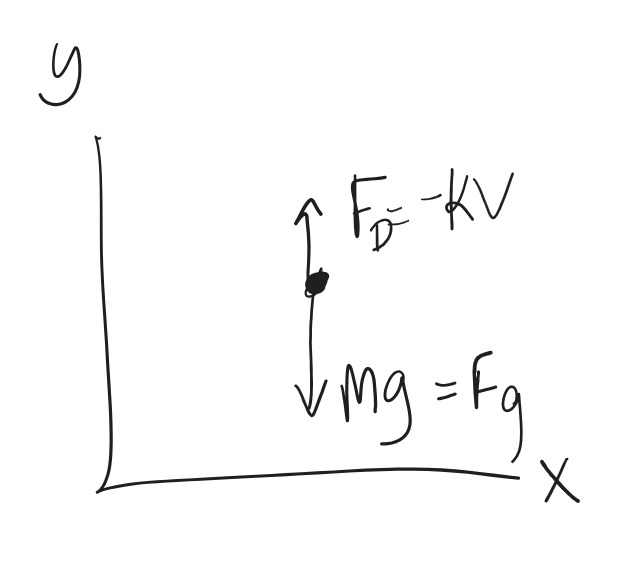 y
F_D = -KV
Mg = Fg
X